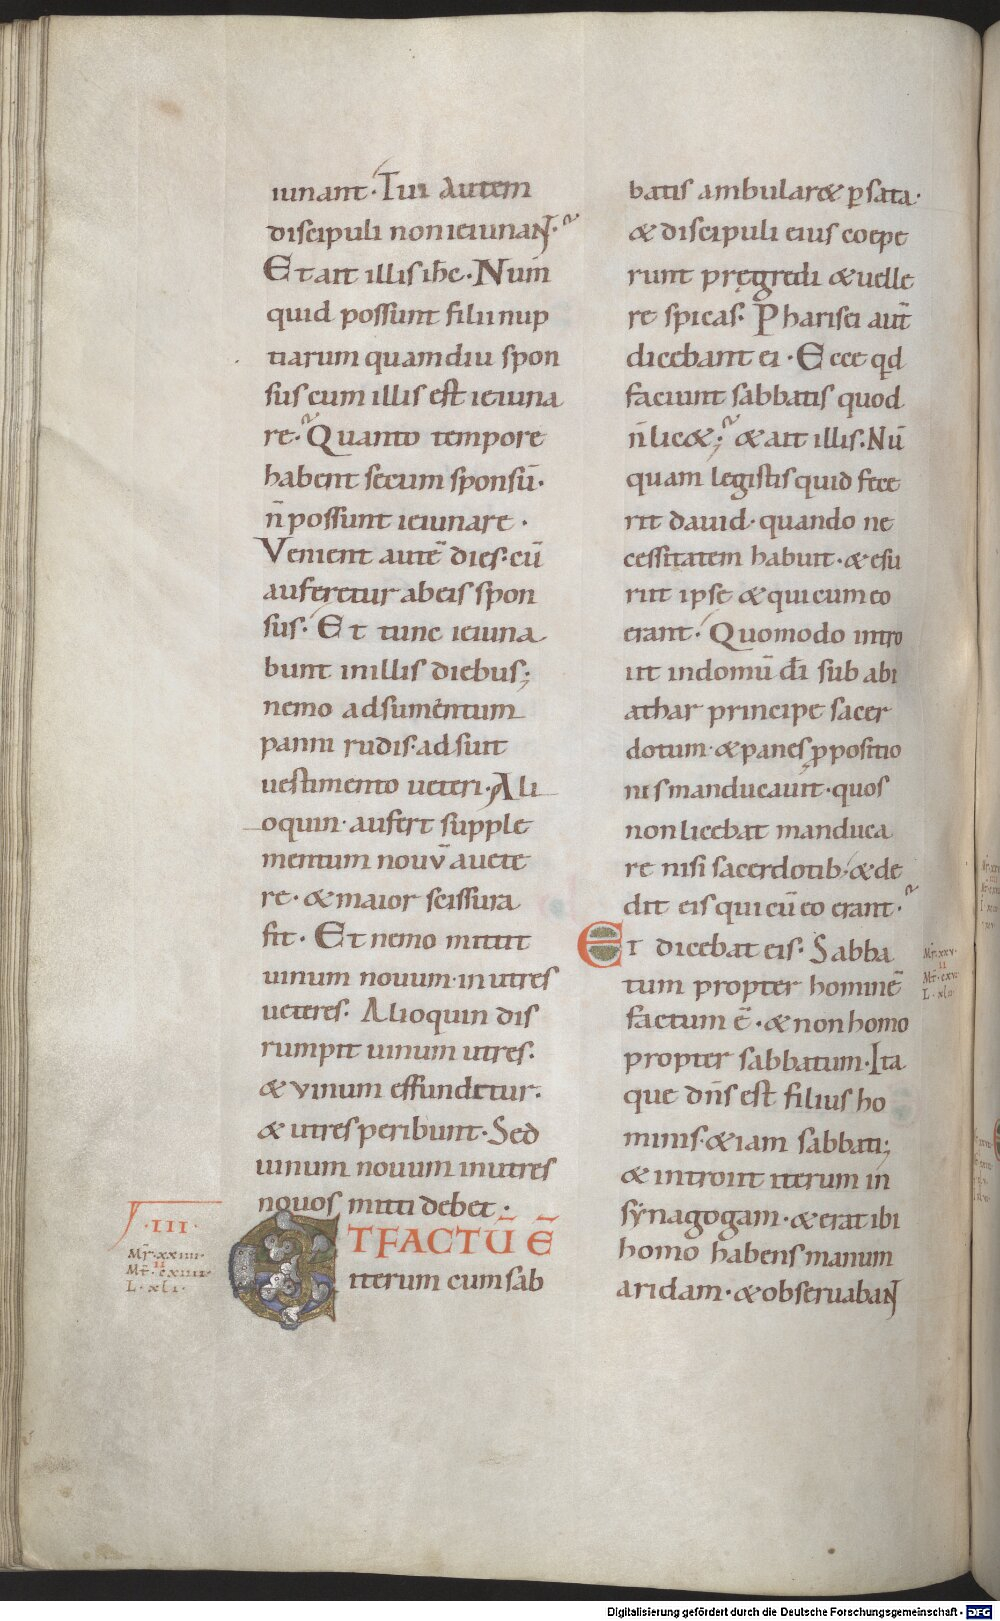 iunant· Tui autem
discipuli non ieiunaN̄·
Et ait illis ih̄c· Num
quid possunt filii nup
tiarum quamdiu spon
sus cum illis est ieiuna
re· Quanto tempore
habent secum sponsū·
n̄ possunt ieiunare·
Venient autē dies· cū
auferetur ab eis spon
sus· Et tunc ieiuna
bunt in illis diebus;
nemo adsumentum
panni rudis· adsuit
uestimento ueteri· Ali
oquin· aufert supple
mentum nouv̄ a uete
re· & maior scissura
fit· Et nemo mittit
uinum nouum· in utres
ueteres· Alioquin dis
rumpit uinum utres·
& vinum effundetur·
& utres peribunt· Sed
uinum nouum in utres
nouos mitti debet·
·III·
Mr̄·xxiiii·
II
Mt̄·cxiiii·
L·xli·
ET FACTŪ Ē
iterum cum sab
batis ambular& ꝑ sata·
& discipuli eius coepe
runt pręgredi & uelle
re spicas· Pharisei aut̄
dicebant ei· Ecce qd̄
faciunt sabbatis quod
n̄ lic&; & ait illis· Nū
quam legistis quid fece
rit dauid· quando ne
cessitatem habuit· & esu
riit ipse & qui cum eo
erant· Quomodo intro
iit in domū dī sub abi
athar principe sacer
dotum· & panes ꝓpositio
nis manducauit· quos
non licebat manduca
re nisi sacerdotib; & de
dit eis qui cū eo erant·
Et dicebat eis· Sabba
tum propter hominē
factum ē· & non homo
propter sabbatum· Ita
que dn̄s est filius ho
minis· & iam sabbati;
& introiit iterum in
synagogam· & erat ibi
homo habens manum
aridam· & obseruabaN̄
Mr̄·xxv·
II
Mt̄·cxv·
L·xlii·
Digitalisierung gefördert durch die Deutsche Forschungsgemeinschaft - DFG